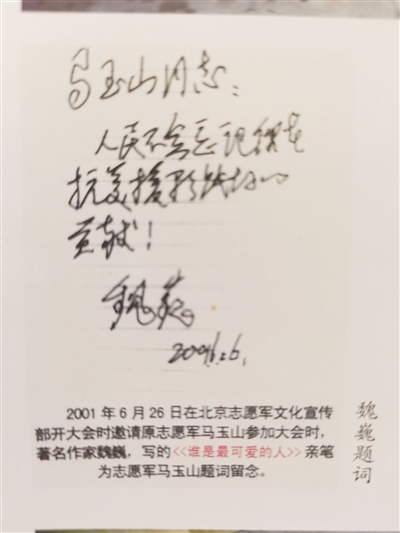 马玉山同志：
人民不会忘记你在
抗美援朝战场的
贡献！
魏巍
2001.6.26.
2001年6月26日在北京志愿军文化宣传
部开大会时邀请原志愿军马玉山参加大会时，
著名作家魏巍，写的<<谁是最可爱的人>>亲笔
为志愿军马玉山题词留念。
魏巍题词